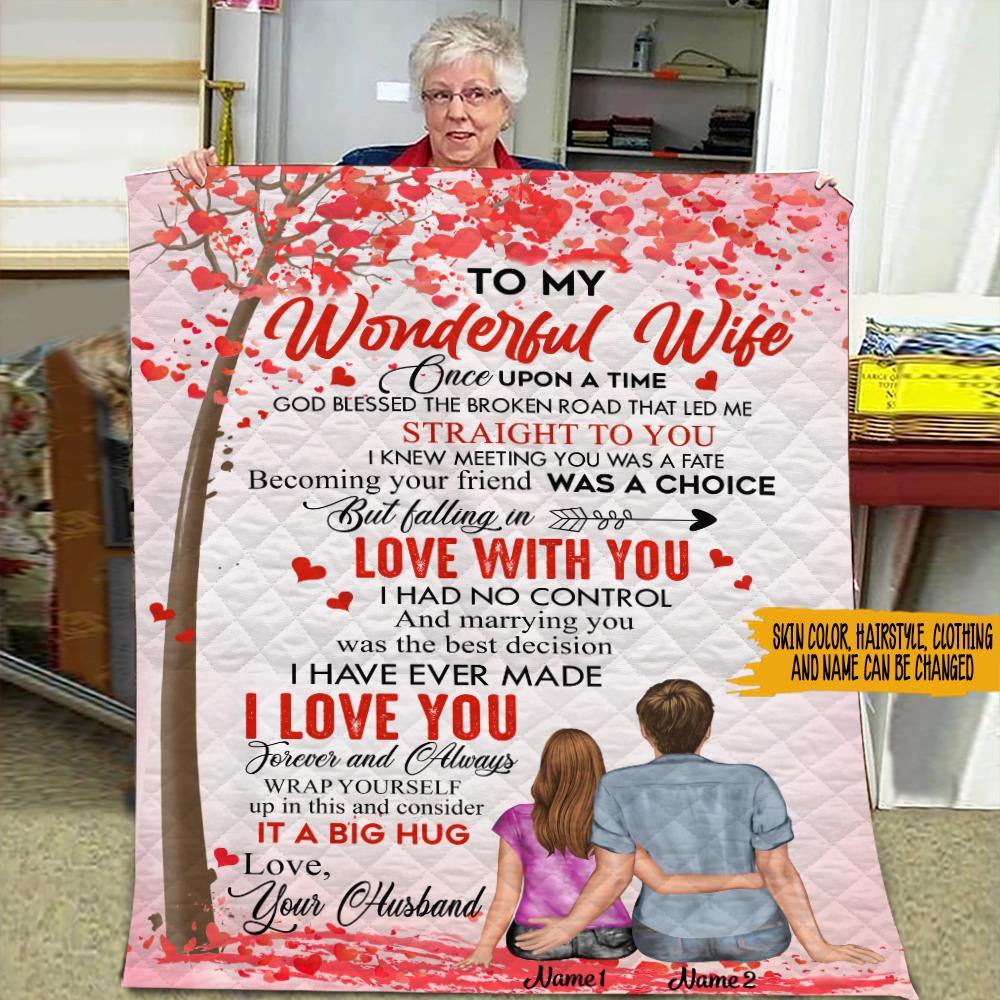 TO MY
Wonderful Wife
Once UPON A TIME
GOD BLESSED THE BROKEN ROAD THAT LED ME
STRAIGHT TO YOU
I KNEW MEETING YOU WAS A FATE
Becoming your friend WAS A CHOICE
But falling in
LOVE WITH YOU
I HAD NO CONTROL
And marrying you
was the best decision
I HAVE EVER MADE
I LOVE YOU
Forever and Always
WRAP YOURSELF
up in this and consider
IT A BIG HUG
Love,
Your Husband
Name 1 Name 2
SKIN COLOR, HAIRSTYLE, CLOTHING
AND NAME CAN BE CHANGED